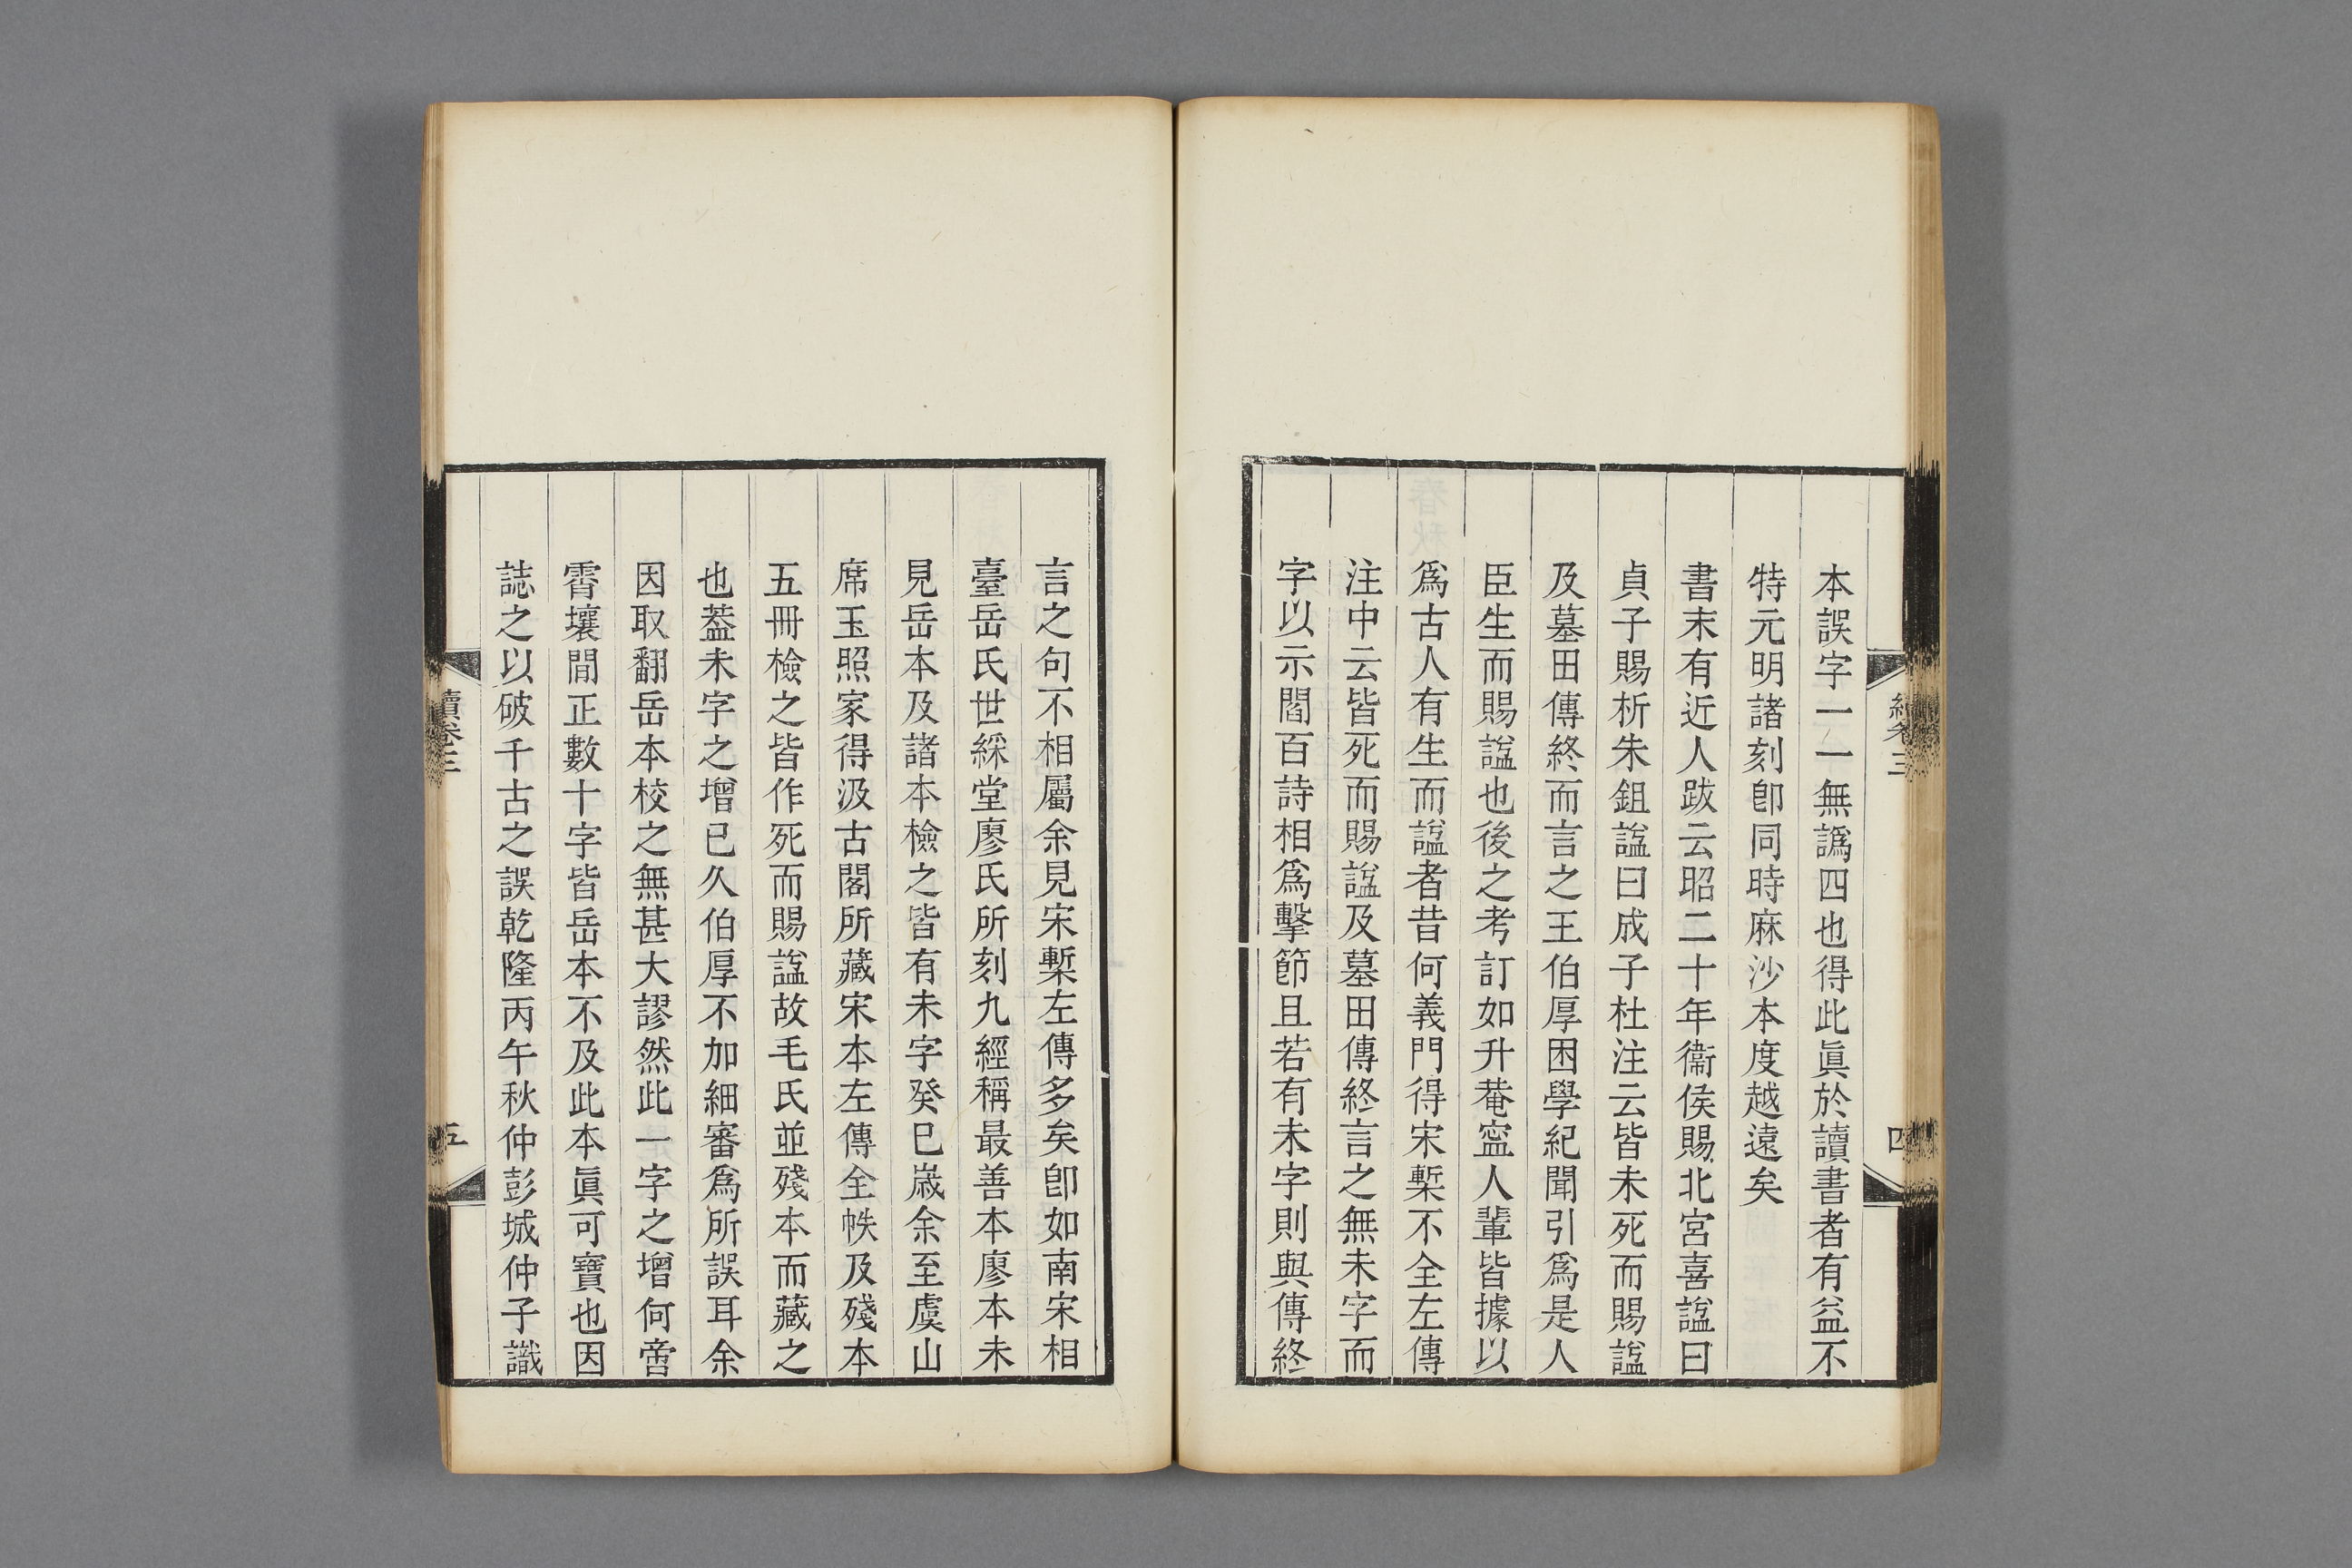 本誤字一一無譌四也得此眞於讀書者有益不
特元明諸刻卽同時麻沙本度越遠矣
書末有近人跋云昭二十年衞侯賜北宮喜諡曰
貞子賜析朱鉏諡曰成子杜注云皆未死而賜諡
及墓田傳終而言之王伯厚困學紀聞引爲是人
臣生而賜諡也後之考訂如升菴寍人輩皆據以
爲古人有生而諡者昔何義門得宋槧不全左傳
注中云皆死而賜諡及墓田傳終言之無未字而
字以示閻百詩相爲擊節且若有未字則與傳終
言之句不相屬余見宋槧左傳多矣卽如南宋相
臺岳氏世綵堂廖氏所刻九經稱最善本廖本未
見岳本及諸本檢之皆有未字癸巳嵗余至虞山
席玉照家得汲古閣所藏宋本左傳全帙及殘本
五冊檢之皆作死而賜諡故毛氏並殘本而藏之
也葢未字之增已久伯厚不加細審爲所誤耳余
因取翻岳本校之無甚大謬然此一字之增何啻
霄壤間正數十字皆岳本不及此本眞可寶也因
誌之以破千古之誤乾隆丙午秋仲彭城仲子識
續卷三
五